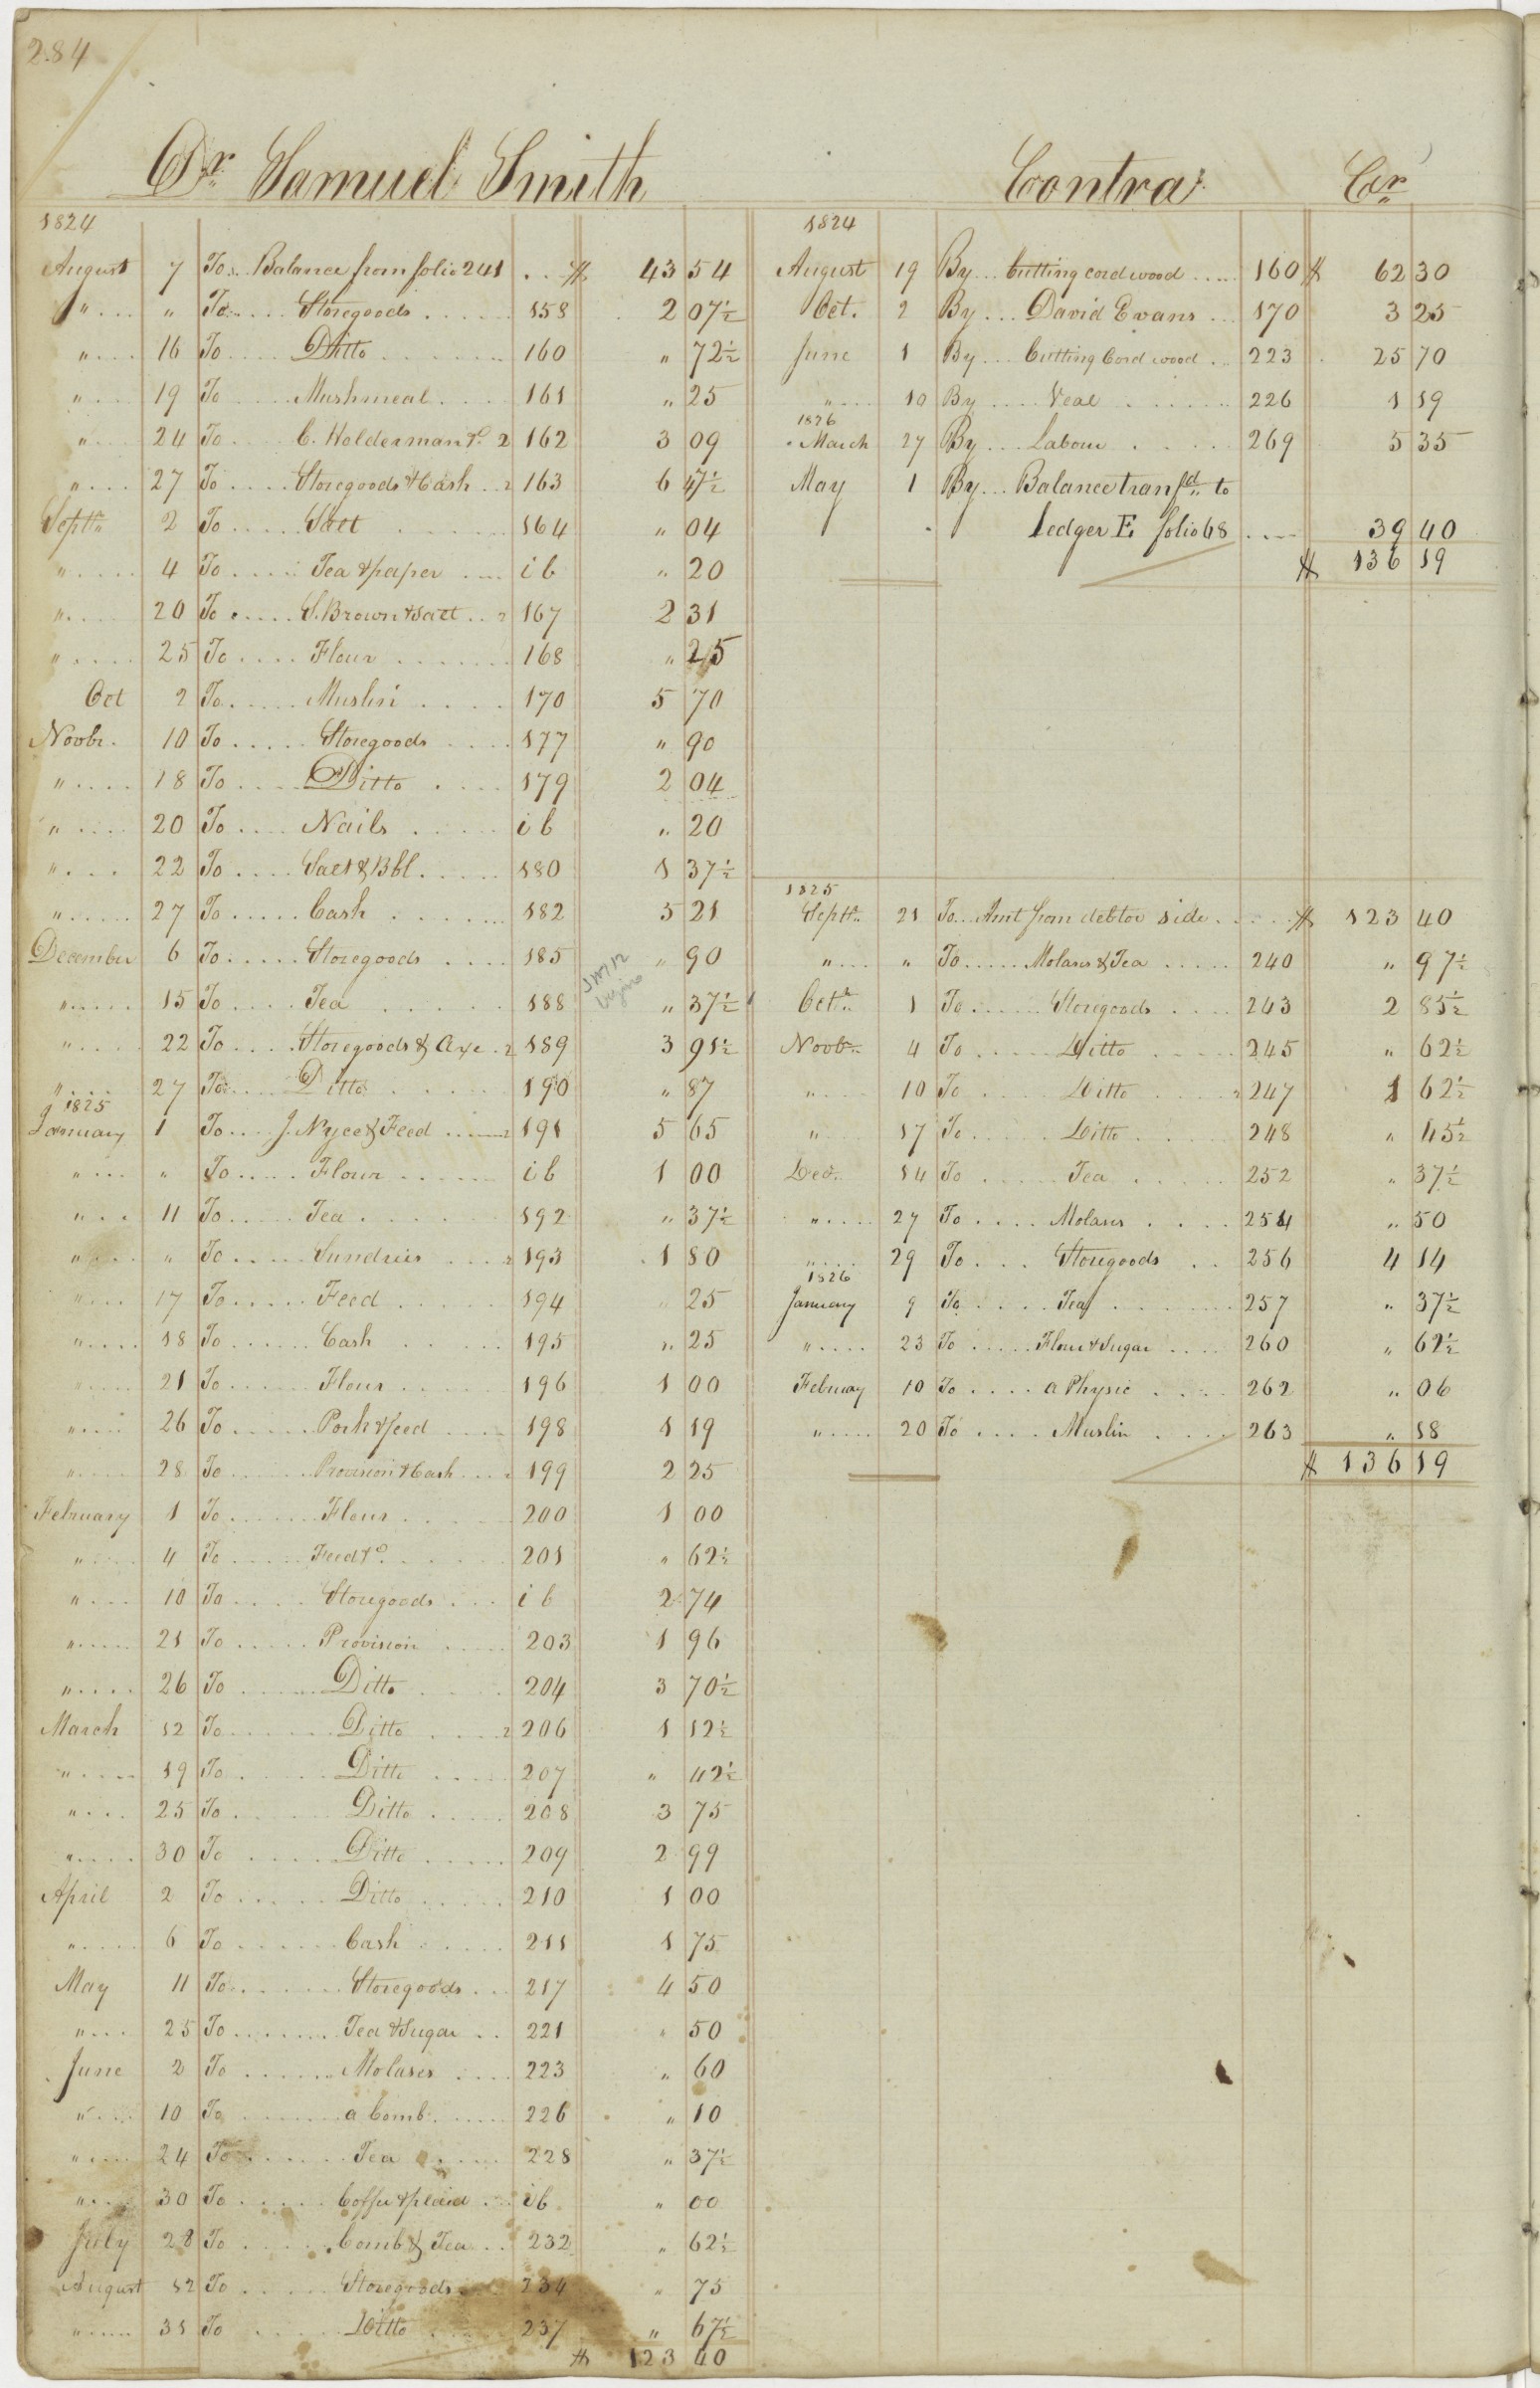 284
Dr Samuel Smith
1824
August 7 To... Balance from folio 241 ... $ 43 54
" " To... Storegoods ... 158 2 07½
" 16 To ... Ditto ... 160 " 72½
" 19 To ... Mushmeal ... 161 " 25
" 24 To ... C. Holderman &c. 2 162 3 09
" 27 To ... Storegoods & Cash .. 2 163 6 47½
Septr 2 To ... Salt ... 164 " 04
" 4 To ... Tea & paper ... ib " 20
" 20 To ... S. Brown & salt .. 2 167 2 31
" 25 To ... Flour ... 168 " 25
Oct 2 To ... Muslin ... 170 5 70
Novbr. 10 To ... Storegoods ... 177 " 90
" 18 To ... Ditto ... 179 2 04
" 20 To ... Nails ... ib " 20
" 22 To ... Salt & Bbl ... 180 1 37½
" 27 To ... Cash ... 182 5 21
December 6 To ... Storegoods ... 185 " 90
" 15 To ... Tea ... 188 " 37½
" 22 To ... Storegoods & Axe . 2 189 3 91½
" 27 To ... Ditto ... 190 " 87
1825
January 1 To ... J. Nyce & Feed ... 2 191 5 65
" " To ... Flour ... ib 1 00
" 11 To ... Tea ... 192 " 37½
" " To ... Sundries ... 2 193 1 80
" 17 To ... Feed ... 194 " 25
" 18 To ... Cash ... 195 " 25
" 21 To ... Flour ... 196 1 00
" 26 To ... Pork & feed ... 198 1 19
" 28 To ... Provision & Cash ... 199 2 25
February 1 To ... Flour ... 200 1 00
" 4 To ... Feed &c. ... 201 " 62½
" 10 To ... Storegoods ... ib 2 74
" 21 To ... Provision ... 203 1 96
" 26 To ... Ditto ... 204 3 70½
March 12 To ... Ditto ... 2 206 1 12½
" 19 To ... Ditto ... 207 " 42½
" 25 To ... Ditto ... 208 3 75
" 30 To ... Ditto ... 209 2 99
April 2 To ... Ditto ... 210 1 00
" 6 To ... Cash ... 211 1 75
May 11 To ... Storegoods ... 217 4 50
" 25 To ... Tea & Sugar .. 221 " 50
June 2 To ... Molases ... 223 " 60
" 10 To ... a Comb ... 226 " 10
" 24 To ... Tea ... 228 " 37½
" 30 To ... Coffee & plaid ... ib " 00
July 28 To ... Comb & Tea .. 232 " 62½
August 12 To ... Storegoods ... 234 " 75
" 31 To ... Ditto ... 237 " 67½
$ 123 40
Contra Cr
1824
August 19 By ... Cutting cord wood ..... 160 $ 62 30
Oct. 2 By ... David Evans ... 170 3 25
June 1 By ... Cutting Cord wood .. 223 25 70
" 10 By ... Veal ... 226 1 19
1826
March 27 By ... Labour ... 269 5 35
May 1 By ... Balance transfd. to
Ledger E folio 68 .... 39 40
$ 136 19
1825
Septr. 21 To .. Amt from debtor side ... $ 123 40
" " To ... Molases & Tea ... 240 " 97½
Octr. 1 To ... Storegoods ... 243 2 85½
Novbr. 4 To ... Ditto ... 245 " 62½
" 10 To ... Ditto ... 2 247 1 62½
" 17 To ... Ditto ... 248 " 45½
Dec. 14 To ... Tea ... 252 " 37½
" 27 To ... Molases ... 254 " 50
" 29 To ... Storegoods .. 256 4 14
1826
January 9 To ... Tea ... 257 " 37½
" 23 To ... Flour & Sugar ... 260 " 62½
Februay 10 To ... a Physic ... 262 " 06
" 20 To ... Muslin ... 263 " 18
$ 136 19